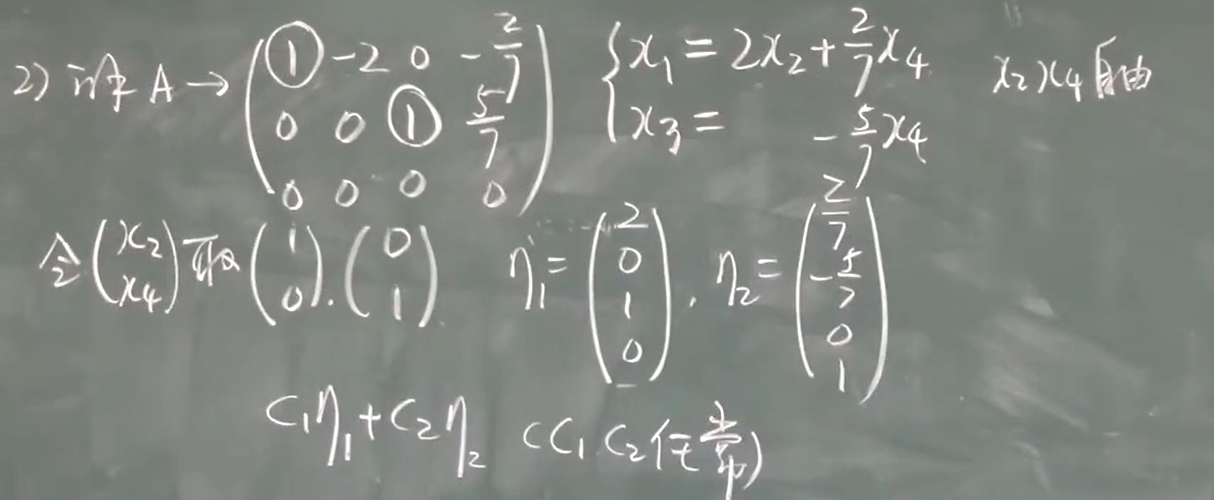 2) 求 A → (① -2 0 -2/7; 0 0 ① 5/7; 0 0 0 0) {x₁ = 2x₂ + 2/7 x₄; x₃ = -5/7 x₄ x₂ x₄ 自由
令 (x₂; x₄) 取 (1; 0). (0; 1) η₁ = (2; 0; 1; 0), η₂ = (2/7; -5/7; 0; 1)
C₁η₁ + C₂η₂ (C₁ C₂ 任常)